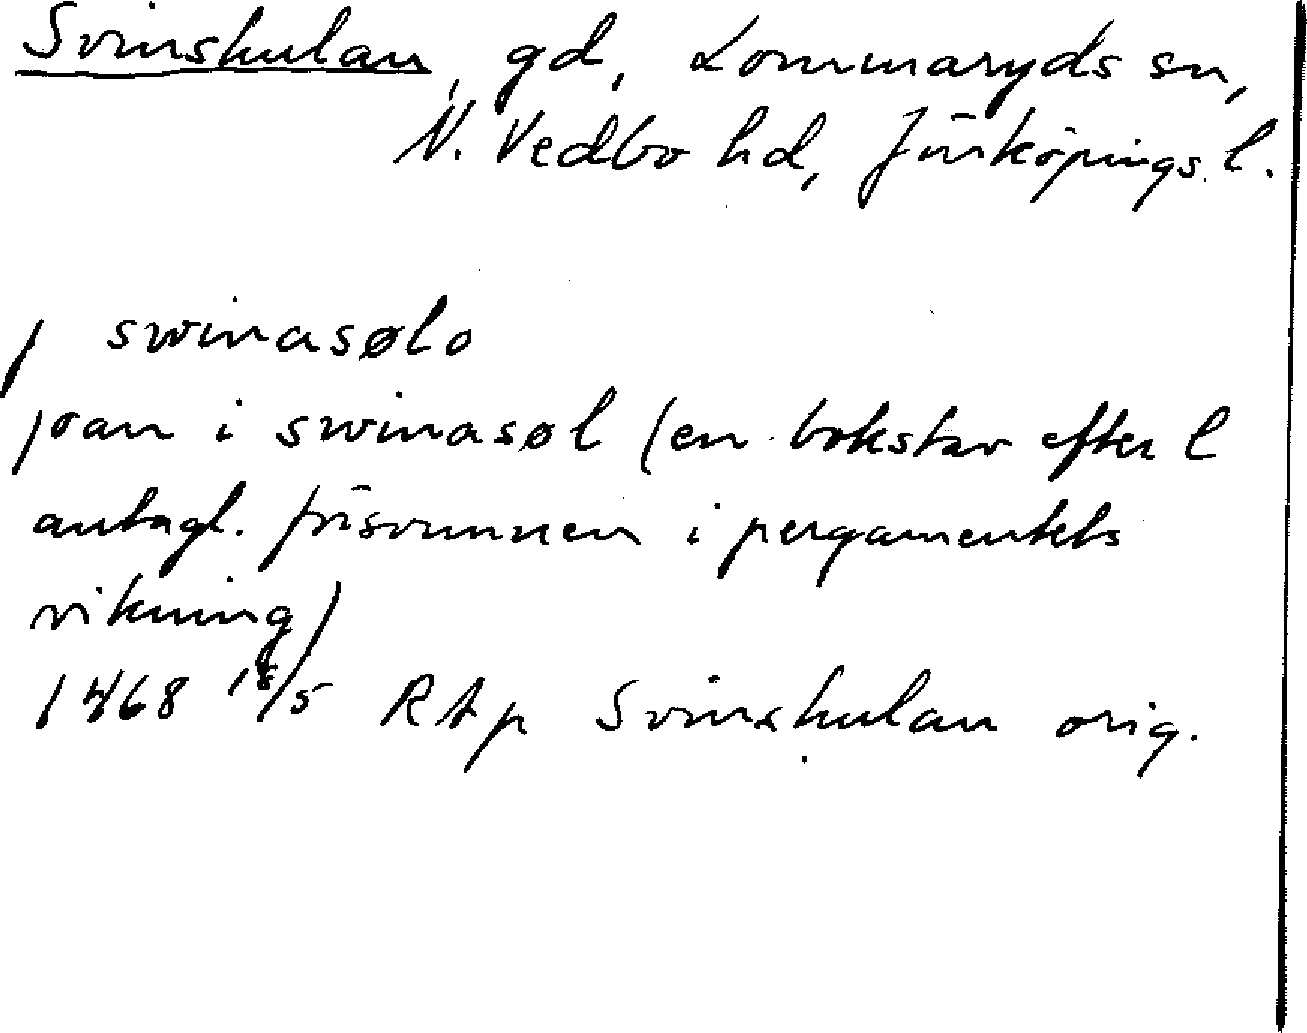 Svinskulan, gd, Lommaryds sn,
N. Vedbo hd, Jönköpings l.
j swinasølo
joan i swinasøl (en bokstav efter l
antagl. försvunnen i pergamentets
vikning)
1468 18/5 RAp Svinskulan orig.